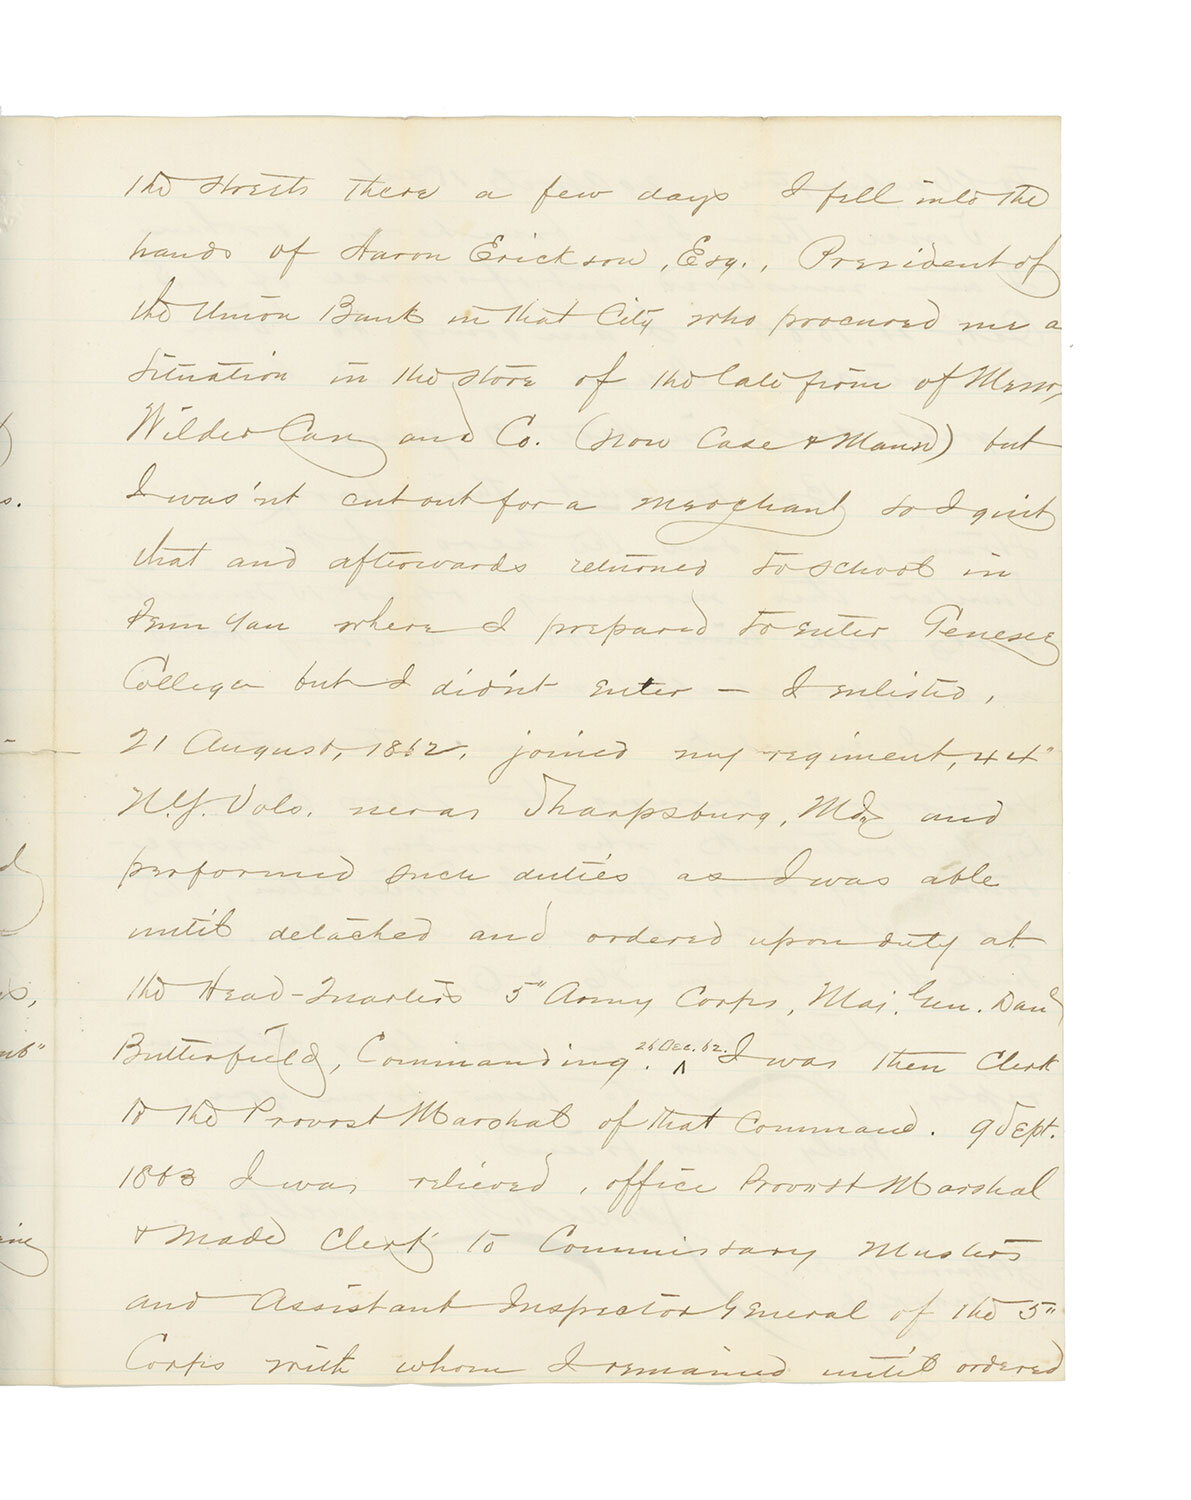 the streets there a few days I fell into the
hands of Aaron Erickson, Esq., President of
the Union Bank in that City who procured me a
situation in the store of the late firm of Messrs,
Wilder Case and Co. (now Case & Mann) but
I was'nt cut out for a merchant so I quit
that and afterwards returned to school in
Penn Yan where I prepared to enter Genesee
College but I did'nt enter — I enlisted,
21 August, 1862, joined my regiment, 44"
N.Y. Vols. near Sharpsburg, Md, and
performed such duties as I was able
until detached and ordered upon duty at
the Head-Quarters 5" Army Corps, Maj. Gen. Danl
Butterfield, Commanding. 26 Dec. 62. I was then Clerk
to the Provost Marshal of that Command. 9 Sept.
1863 I was relieved, office Provost Marshal
& made Clerk to Commissary Musters
and Assistant Inspector General of the 5"
Corps with whom I remained until ordered